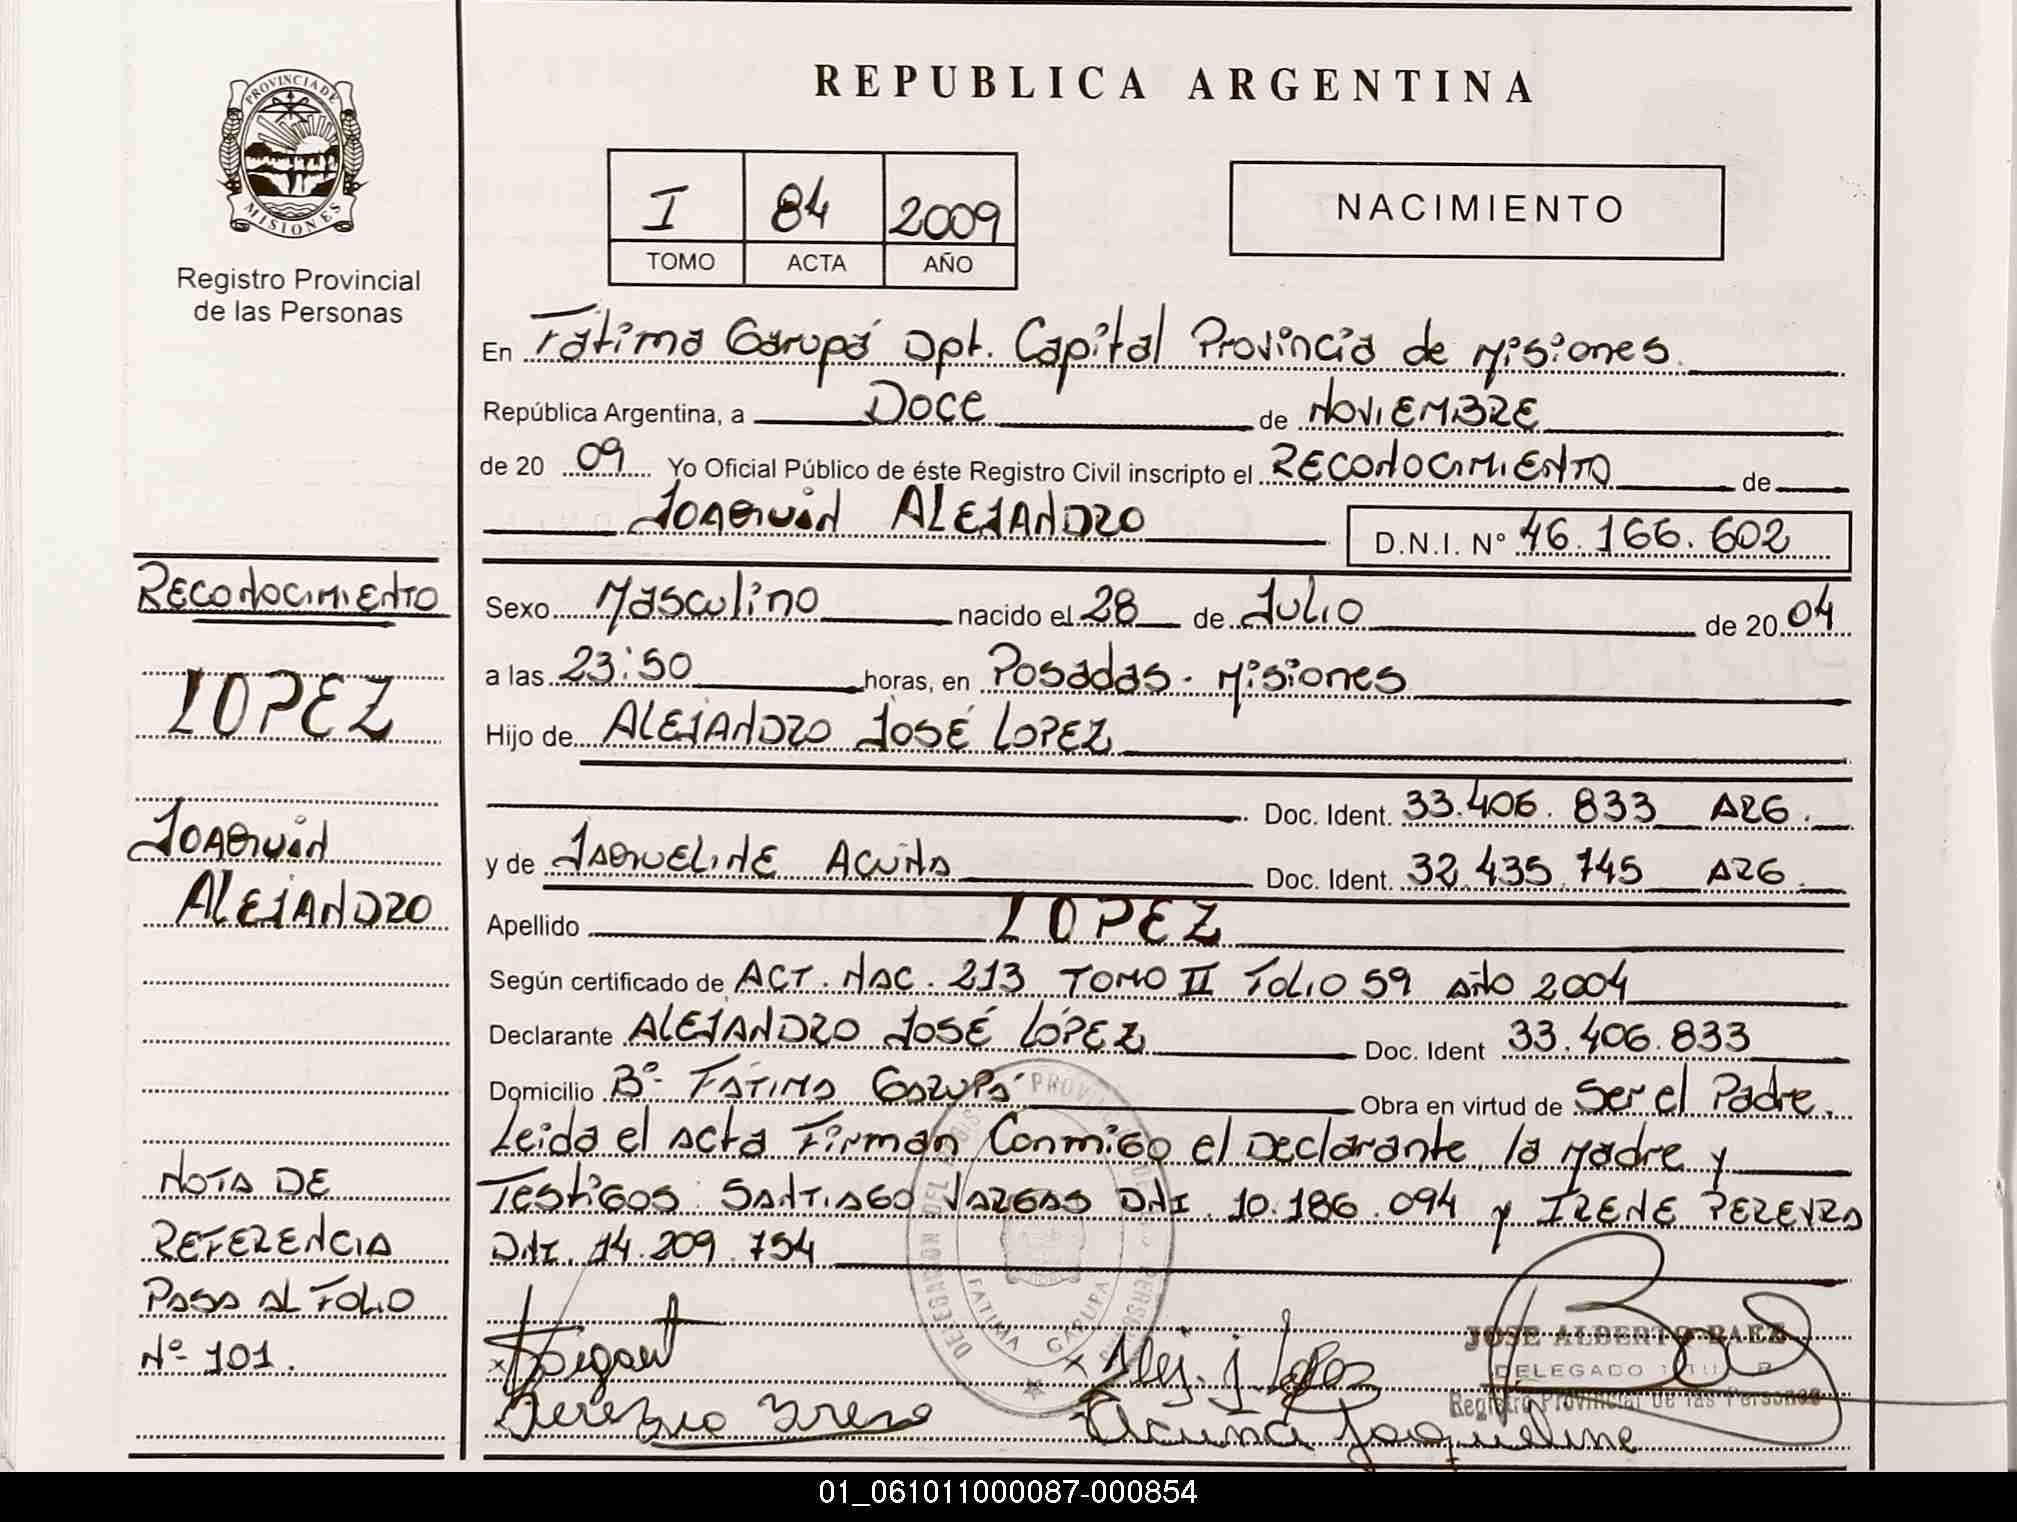 PROVINCIA DE
MISIONES
Registro Provincial
de las Personas
REPUBLICA ARGENTINA
I 84 2009
TOMO ACTA AÑO
NACIMIENTO
En Fátima Garupá Dpt. Capital Provincia de Misiones.
República Argentina, a DOCE de NOVIEMBRE
de 20 09 Yo Oficial Público de éste Registro Civil inscripto el RECONOCIMIENTO de
JOAQUIN ALEJANDRO D.N.I. N° 46.166.602
Sexo Masculino nacido el 28 de JULIO de 20 04
a las 23:50 horas, en Posadas - Misiones
Hijo de ALEJANDRO JOSÉ LOPEZ
Doc. Ident. 33.406.833 ARG.
y de JAQUELINE ACUÑA Doc. Ident. 32.435.745 ARG.
Apellido LOPEZ
Según certificado de ACT. NAC. 213 TOMO II FOLIO 59 AÑO 2004
Declarante ALEJANDRO JOSÉ LÓPEZ Doc. Ident 33.406.833
Domicilio Bº FATIMA GARUPÁ Obra en virtud de Ser el Padre.
Leida el acta Firman Conmigo el Declarante, la Madre y
Testigos: SANTIAGO VARGAS DNI. 10.186.094 y IRENE PEREYRA
DNI. 14.209.754
RECONOCIMIENTO
LOPEZ
JOAQUIN
ALEJANDRO
NOTA DE
REFERENCIA
PASA AL FOLIO
Nº 101.
DELEGACION DEL PROVINCIAL DE LAS PERSONAS
FATIMA GARUPA
x Alej. J. López
Acuña Jaqueline
JOSE ALBERTO BAEZ
DELEGADO TITULAR
Registro Provincial de las Personas
01_061011000087-000854